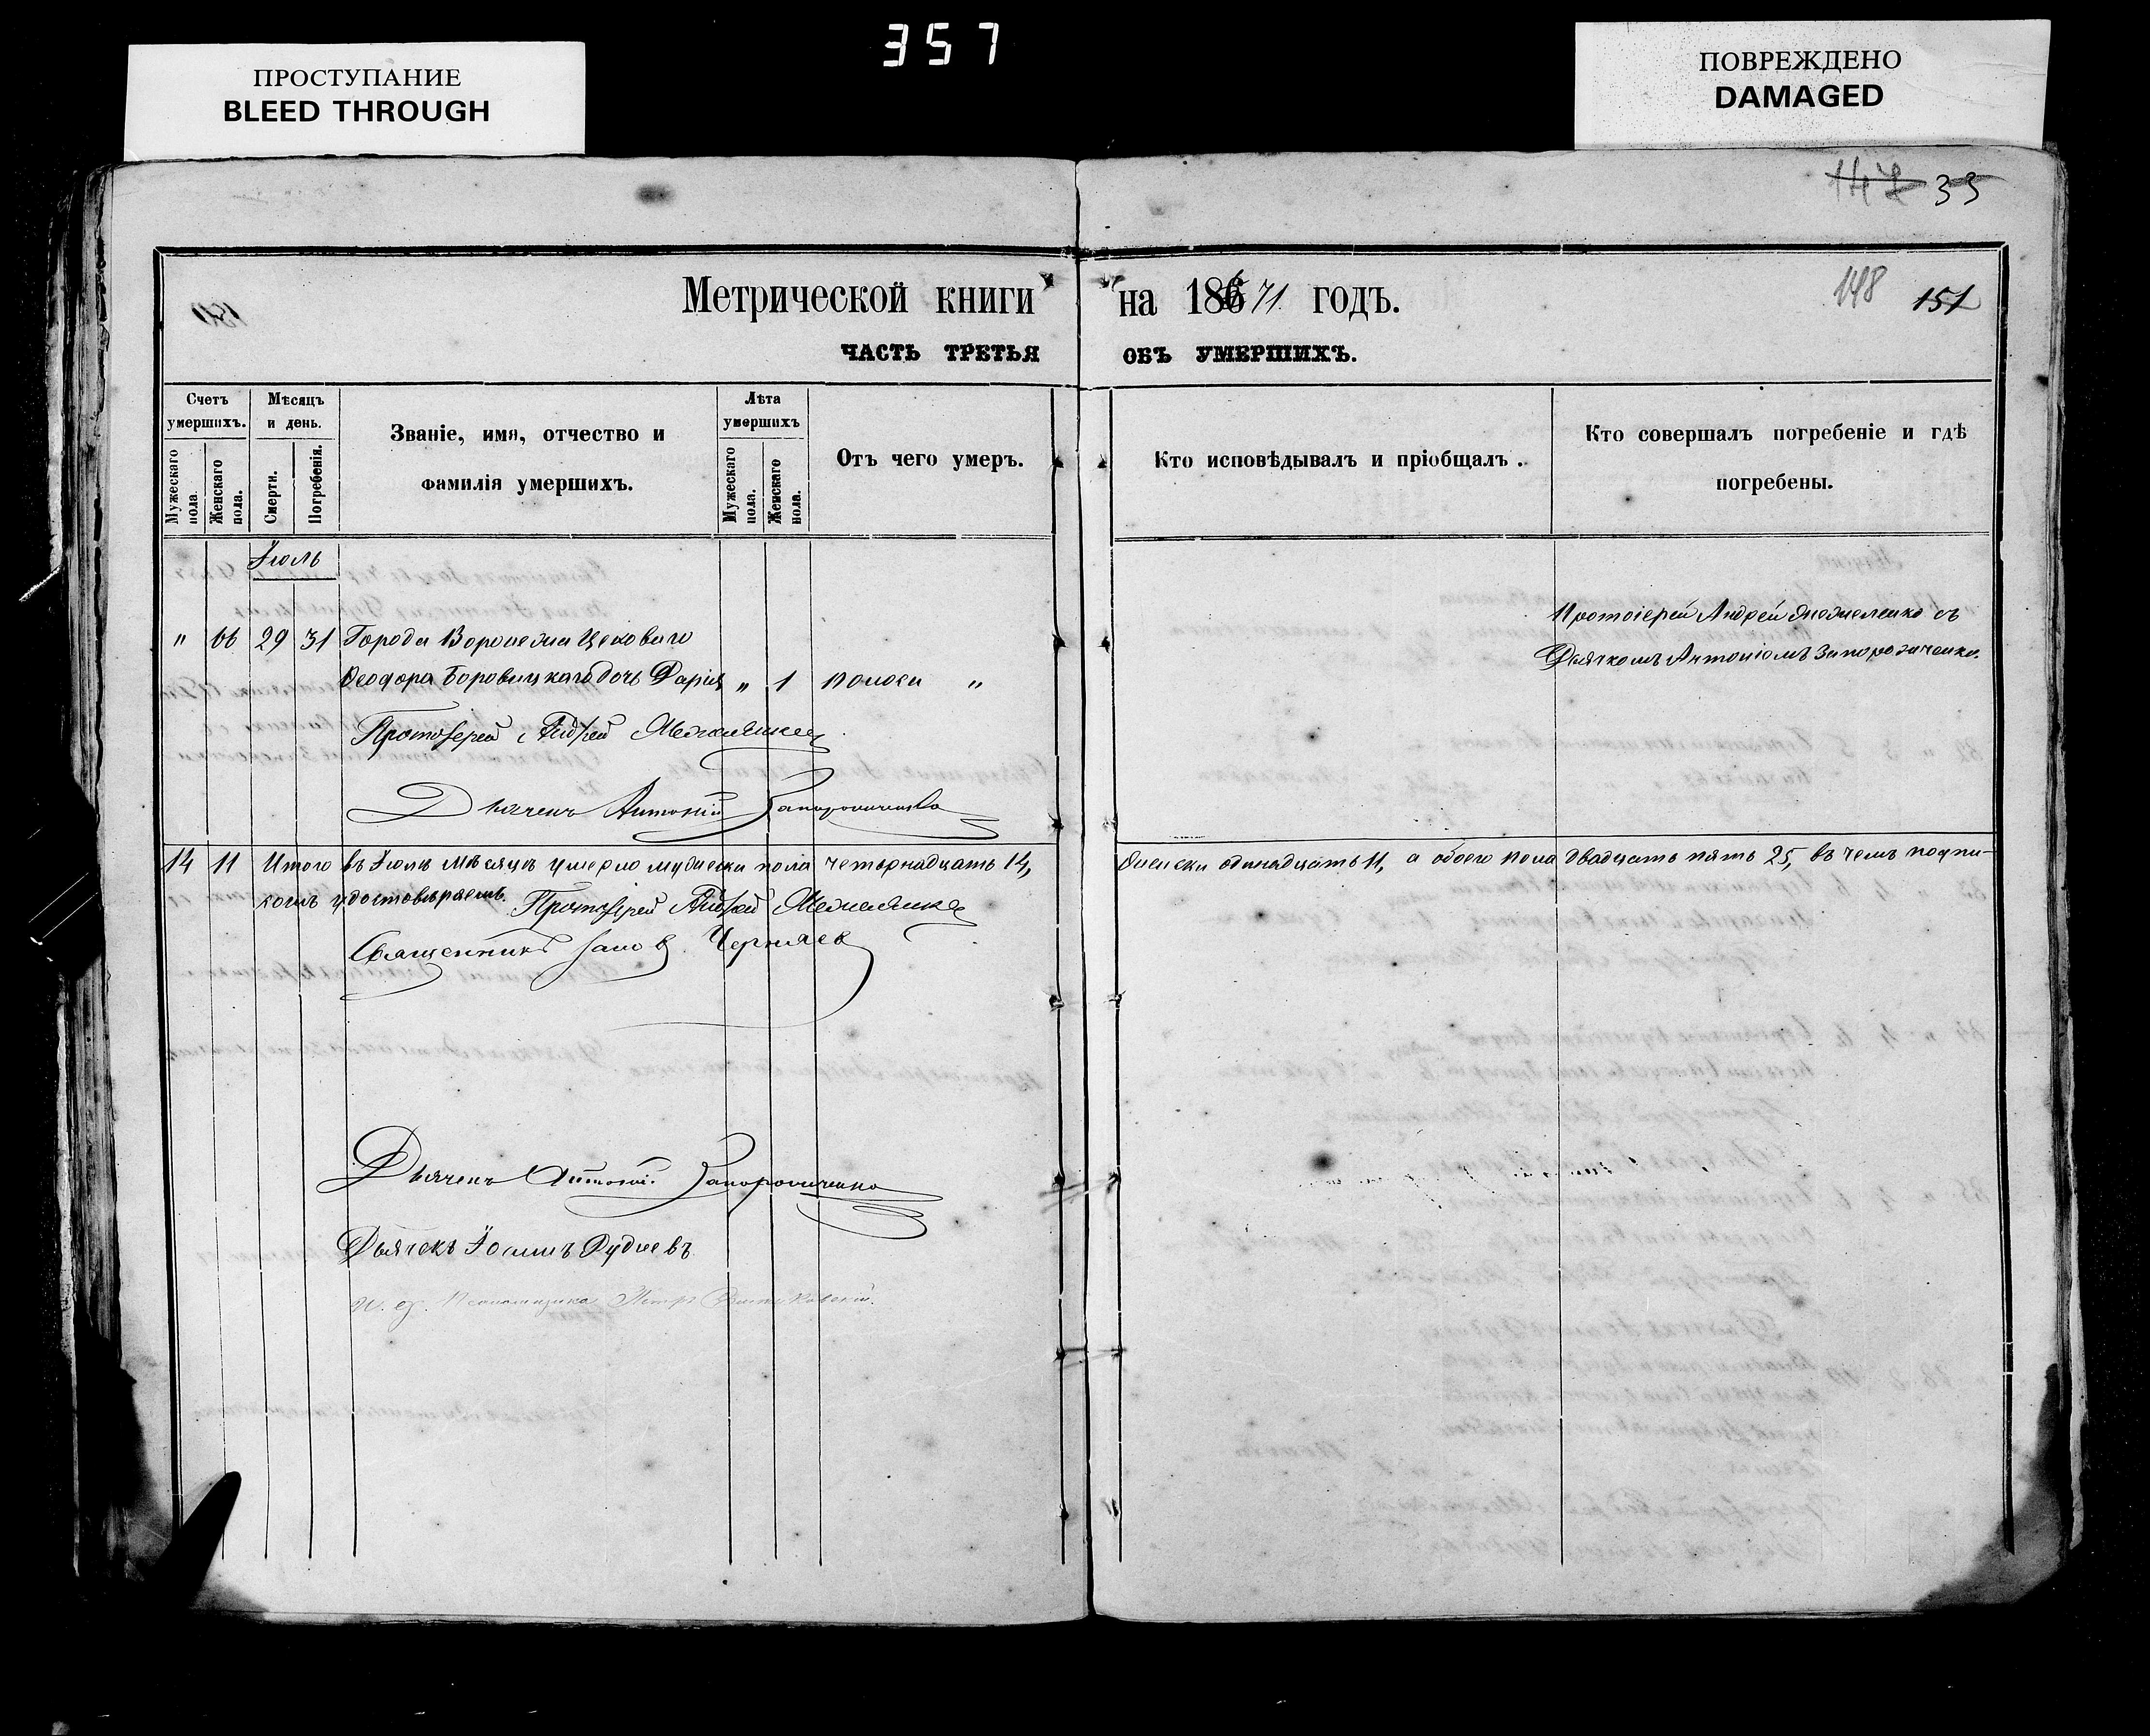 357
ПРОСТУПАНИЕ
BLEED THROUGH
ПОВРЕЖДЕНО
DAMAGED
147 35
Метрической книги на 18671 годъ.
148 151
ЧАСТЬ ТРЕТЬЯ ОБЪ УМЕРШИХЪ.
Счетъ умершихъ.
Мужескаго пола.
Женскаго пола.
Мѣсяцъ и день.
Смерти.
Погребенія.
Званіе, имя, отчество и
фамилія умершихъ.
Лѣта умершихъ
Мужескаго пола.
Женскаго пола.
Отъ чего умеръ.
Кто исповѣдывалъ и пріобщалъ.
Кто совершалъ погребеніе и гдѣ
погребены.
Іюль
" 66 29 31 Города Воронежа Цеховаго
Ѳеодора Боровицкаго дочь Дарія " 1 поноса "
Протоіерей Андрей Межеленко съ
Дьячкомъ Антоніомъ Запорожченко.
Протоіерей Андрей Межеленко
Дьячекъ Антоній Запорожченко
14 11 Итого въ Іюлѣ мѣсяцѣ умерло мужеска пола четырнадцать 14, женска одинадцать 11, а обоего пола двадцать пять 25, въ чемъ подпи-
комъ удостовѣряемъ. Протоіерей Андрей Межеленко
Священникъ Іаков Черняев
Дьячекъ Антоній Запорожченко
Дьячекъ Іоаннъ Руднев
И. д. Псаломщика Петръ